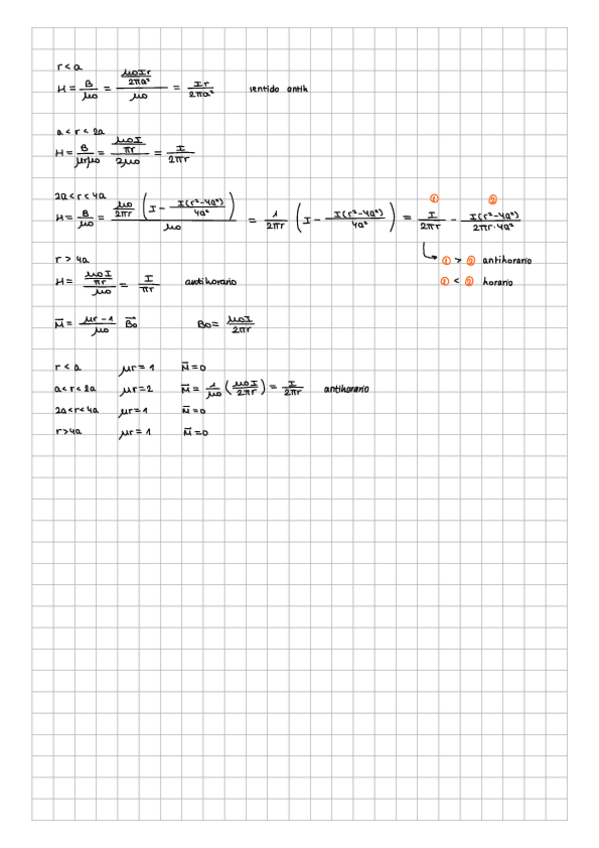 r < a
H = B/μo = (μoIr/2πa²)/μo = Ir/2πa² sentido antih
a < r < 2a
H = B/μrμo = (μoI/πr)/2μo = I/2πr
2a < r < 4a
H = B/μo = (μo/2πr (I − I(r²−4a²)/4a²))/μo = 1/2πr (I − I(r²−4a²)/4a²) = I/2πr − I(r²−4a²)/2πr·4a²
① ②
① > ② antihorario
r > 4a
H = (μoI/πr)/μo = I/πr antihorario
① < ② horario
M⃗ = μr−1/μo B⃗o Bo = μoI/2πr
r < a μr = 1 M⃗ = 0
a < r < 2a μr = 2 M⃗ = 1/μo (μoI/2πr) = I/2πr antihorario
2a < r < 4a μr = 1 M⃗ = 0
r > 4a μr = 1 M⃗ = 0